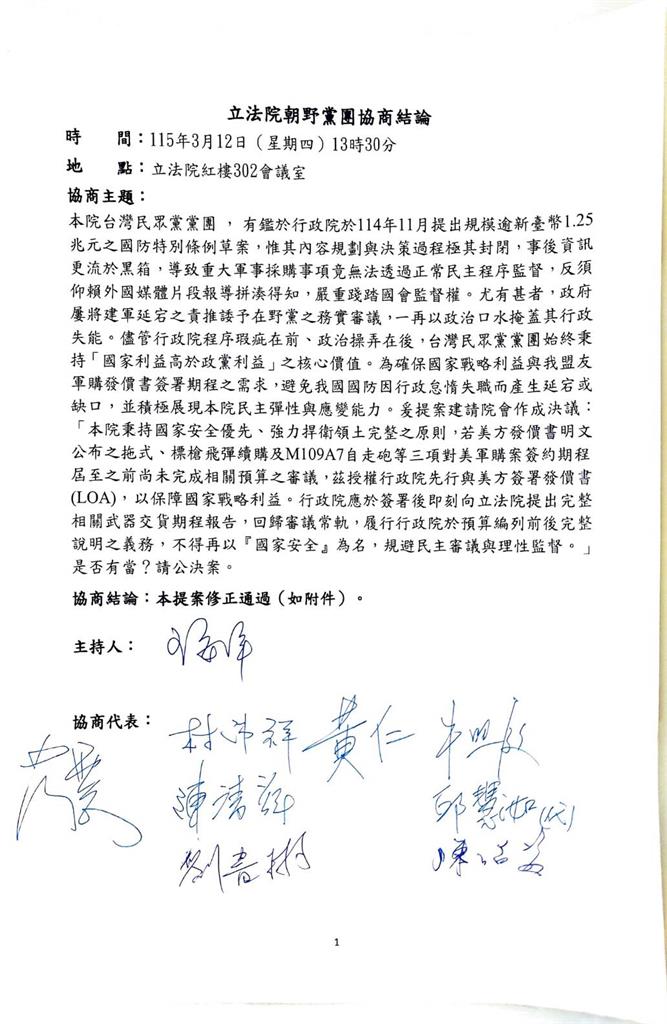 立法院朝野黨團協商結論
時　　間：115年3月12日（星期四）13時30分
地　　點：立法院紅樓302會議室
協商主題：
本院台灣民眾黨黨團，有鑑於行政院於114年11月提出規模逾新臺幣1.25
兆元之國防特別條例草案，惟其內容規劃與決策過程極其封閉，事後資訊
更流於黑箱，導致重大軍事採購事項竟無法透過正常民主程序監督，反須
仰賴外國媒體片段報導拼湊得知，嚴重踐踏國會監督權。尤有甚者，政府
屢將建軍延宕之責推諉予在野黨之務實審議，一再以政治口水掩蓋其行政
失能。儘管行政院程序瑕疵在前、政治操弄在後，台灣民眾黨黨團始終秉
持「國家利益高於政黨利益」之核心價值。為確保國家戰略利益與我盟友
軍購發價書簽署期程之需求，避免我國國防因行政怠惰失職而產生延宕或
缺口，並積極展現本院民主彈性與應變能力。爰提案建請院會作成決議：
「本院秉持國家安全優先、強力捍衛領土完整之原則，若美方發價書明文
公布之拖式、標槍飛彈續購及M109A7自走砲等三項對美軍購案簽約期程
屆至之前尚未完成相關預算之審議，茲授權行政院先行與美方簽署發價書
(LOA)，以保障國家戰略利益。行政院應於簽署後即刻向立法院提出完整
相關武器交貨期程報告，回歸審議常軌，履行行政院於預算編列前後完整
說明之義務，不得再以『國家安全』為名，規避民主審議與理性監督。」
是否有當？請公決案。
協商結論：本提案修正通過（如附件）。
主持人：
協商代表：林沛祥 黃仁
陳清龍 邱慧洳(代)
劉書彬
1